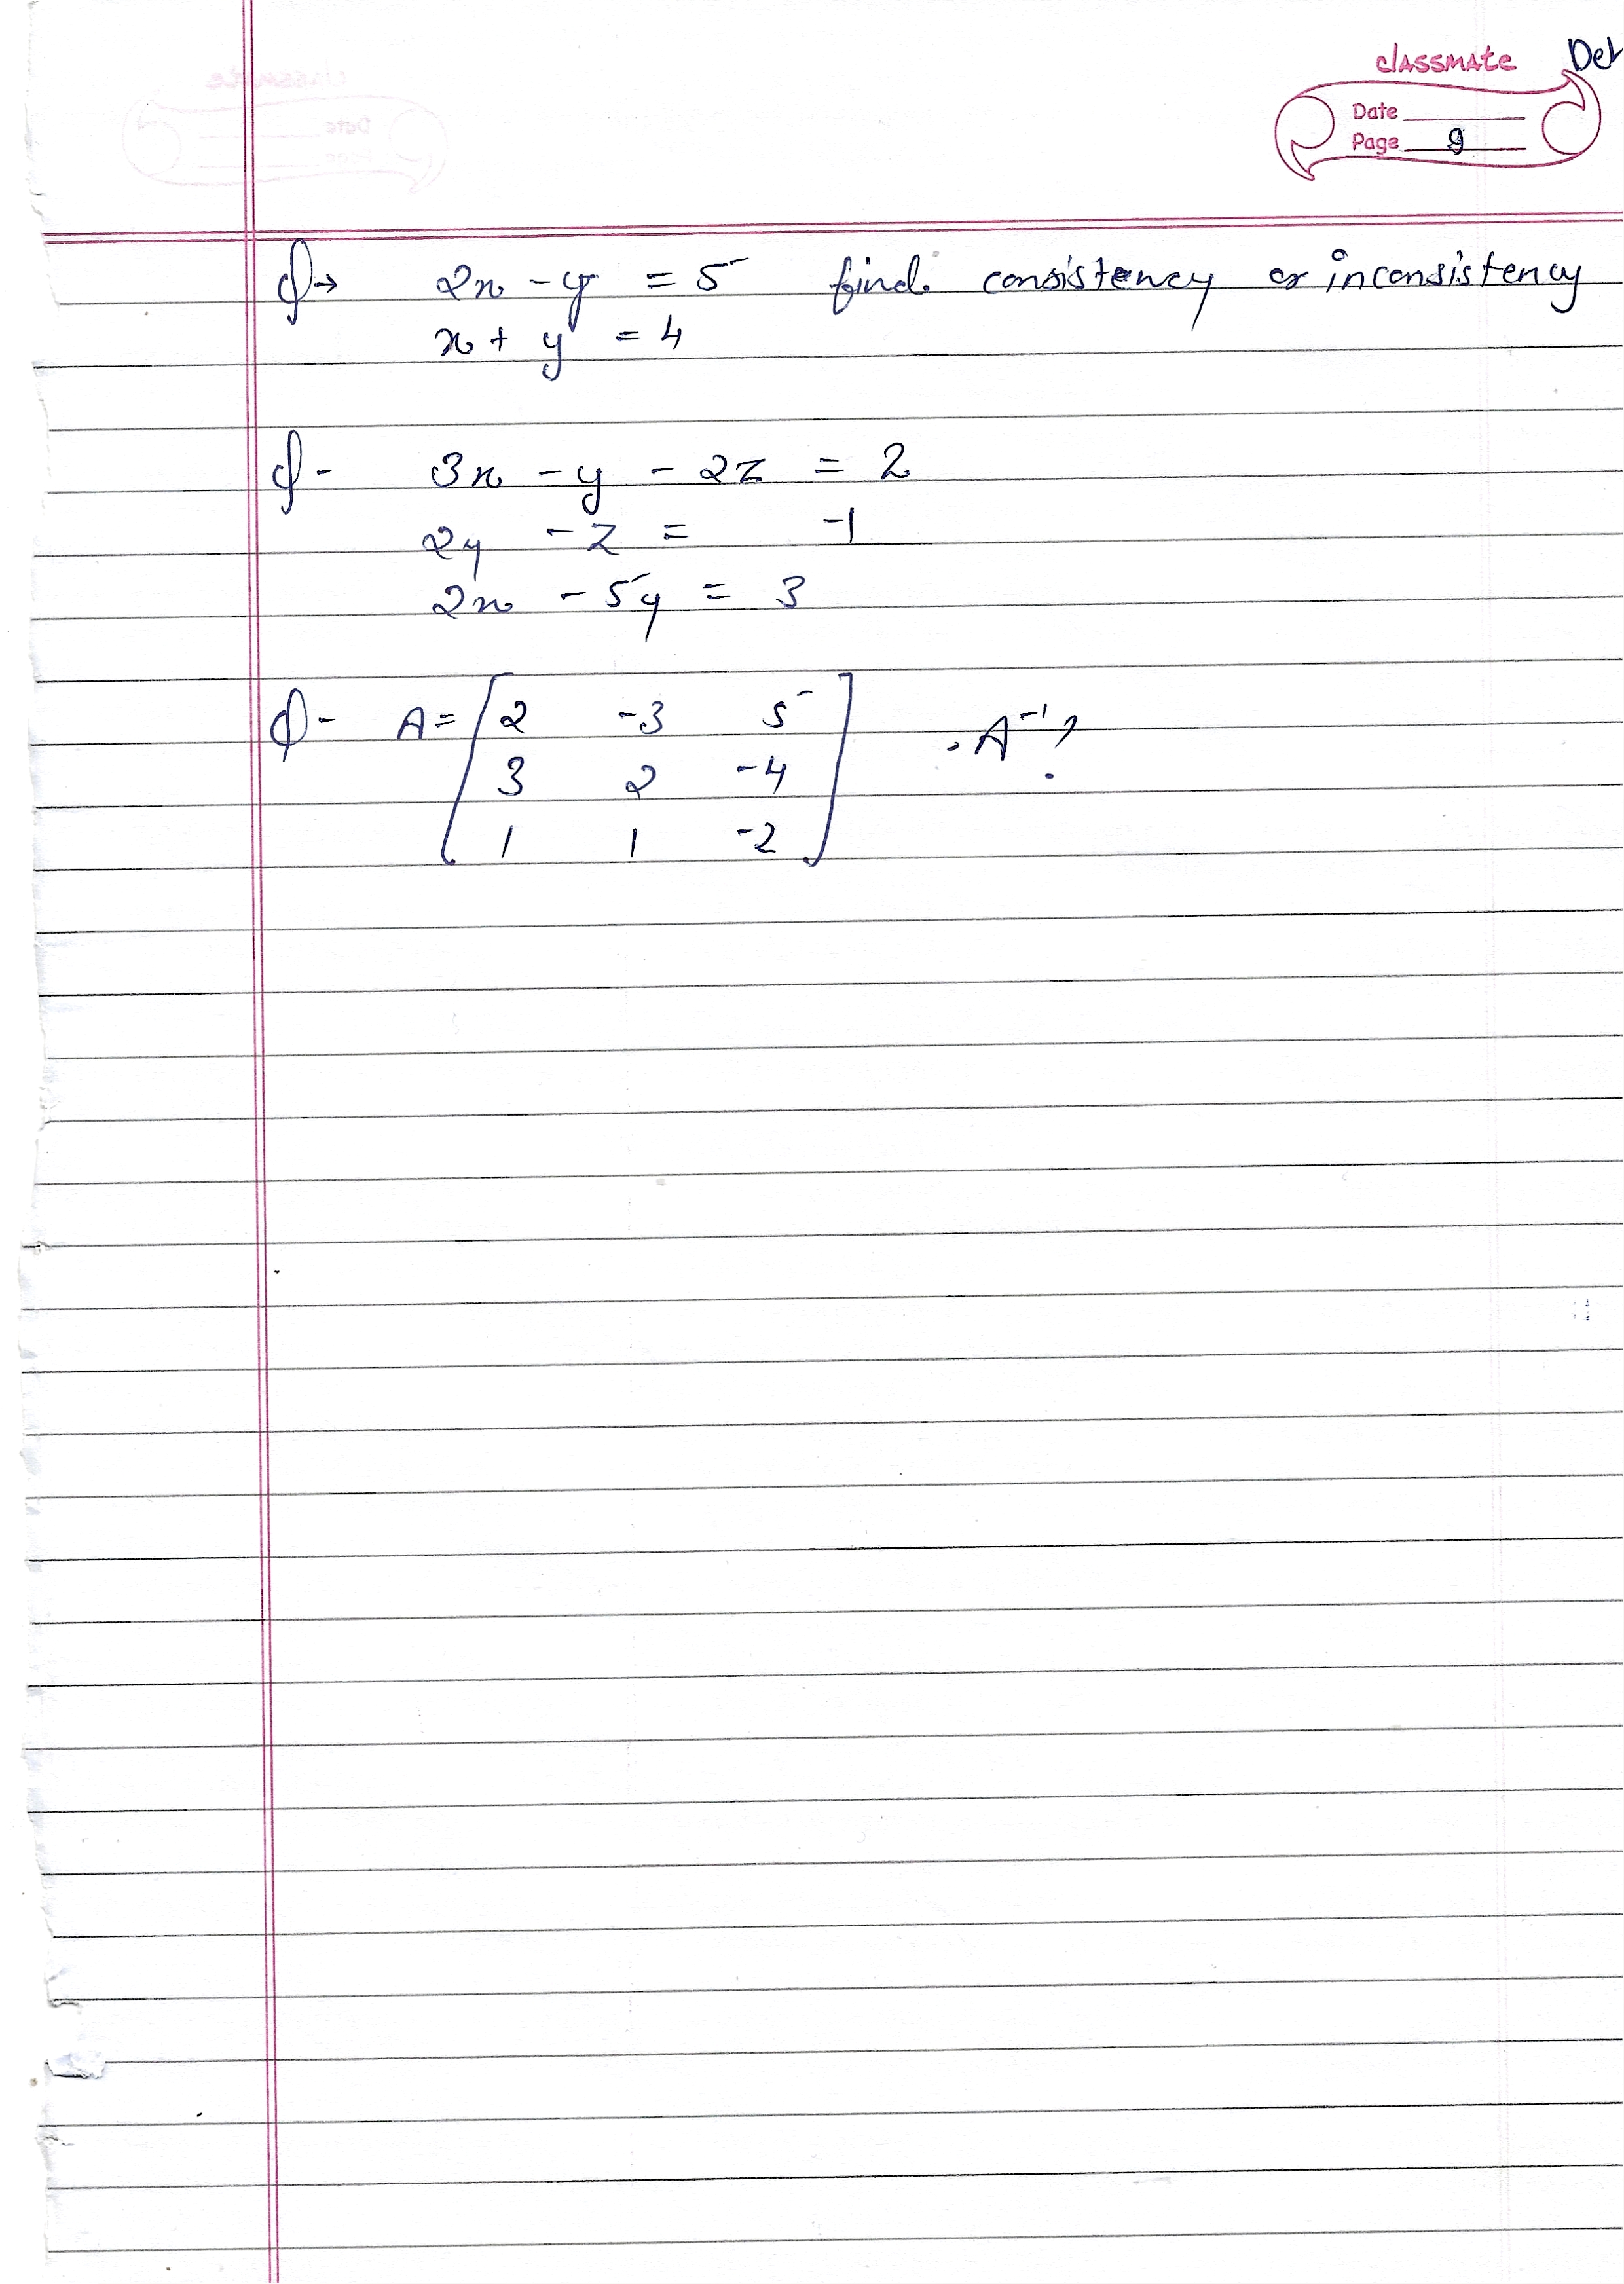 classmate Det
Date
Page 9
Q→ 2x - y = 5 find. consistency or inconsistency
x + y = 4
Q- 3x - y - 2z = 2
2y - z = -1
2x - 5y = 3
Q- A = [2 -3 5
3 2 -4
1 1 -2] . A⁻¹?